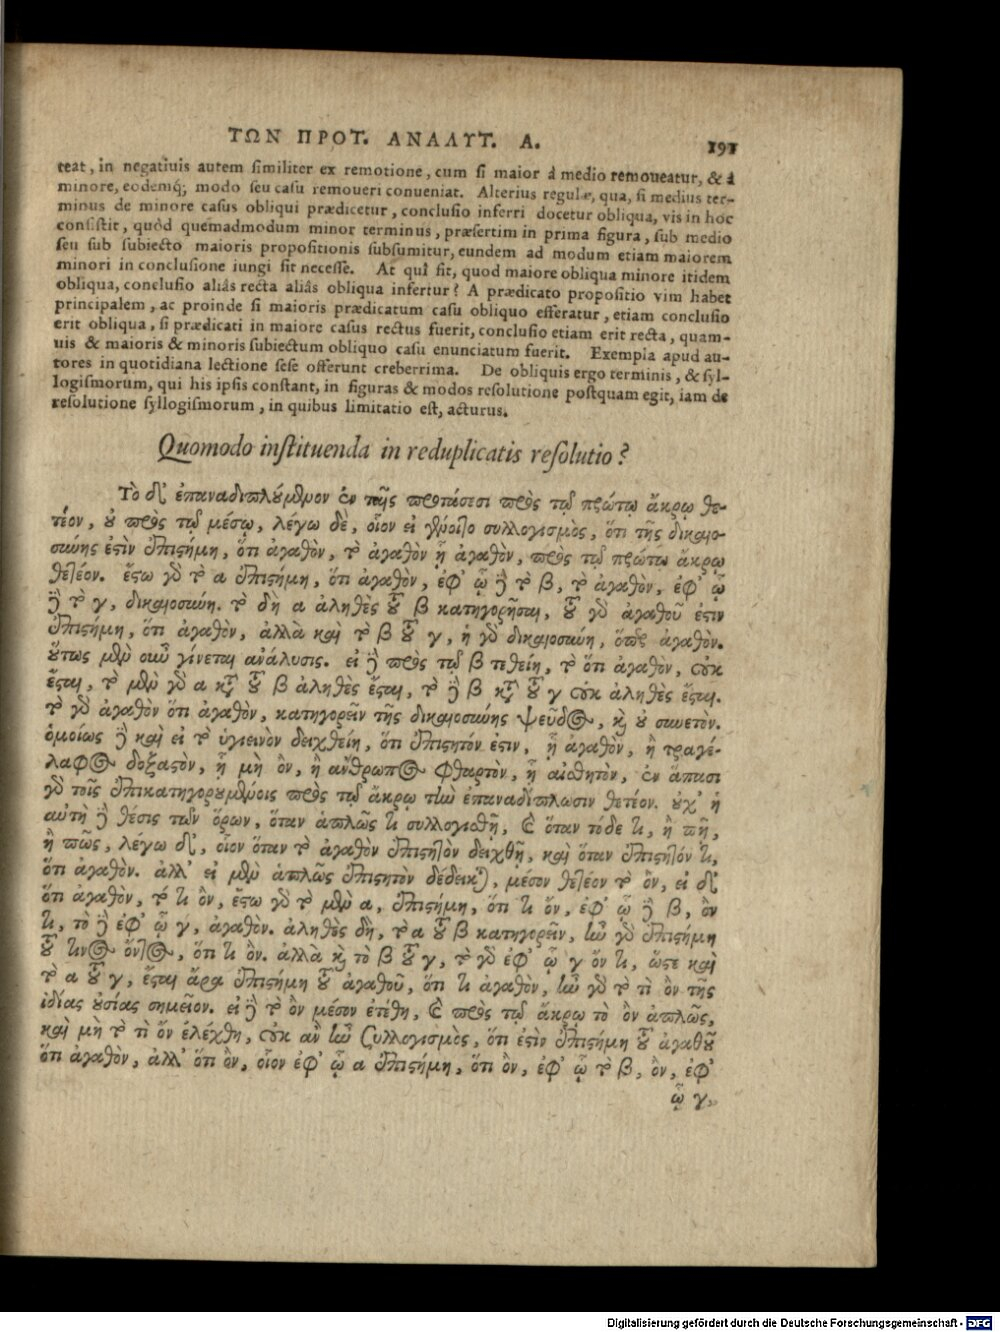 ΤΩΝ ΠΡΟΤ. ΑΝΑΛΥΤ. Α. 191
teat, in negatiuis autem similiter ex remotione, cum si maior à medio remoueatur, & à
minore, eodemq́; modo seu casu remoueri conueniat. Alterius regulæ, qua, si medius ter-
minus de minore casus obliqui prædicetur, conclusio inferri docetur obliqua, vis in hoc
consistit, quòd quemadmodum minor terminus, præsertim in prima figura, sub medio
seu sub subiecto maioris propositionis subsumitur, eundem ad modum etiam maiorem
minori in conclusione iungi sit necesse. At quî fit, quod maiore obliqua minore itidem
obliqua, conclusio aliâs recta aliâs obliqua infertur? A prædicato propositio vim habet
principalem, ac proinde si maioris prædicatum casu obliquo efferatur, etiam conclusio
erit obliqua, si prædicati in maiore casus rectus fuerit, conclusio etiam erit recta, quam-
uis & maioris & minoris subiectum obliquo casu enunciatum fuerit. Exempla apud au-
tores in quotidiana lectione sese offerunt creberrima. De obliquis ergo terminis, & syl-
logismorum, qui his ipsis constant, in figuras & modos resolutione postquam egit, iam de
resolutione syllogismorum, in quibus limitatio est, acturus.
Quomodo instituenda in reduplicatis resolutio?
Τὸ δ' ἐπαναδιπλούμενον ἐν ταῖς προτάσεσι πρὸς τῷ πρώτῳ ἄκρῳ θε-
τέον, οὐ πρὸς τῷ μέσῳ, λέγω δὲ, οἷον εἰ γένοιτο συλλογισμὸς, ὅτι τῆς δικαιο-
σύνης ἐστὶν ἐπιστήμη, ὅτι ἀγαθὸν, τὸ ἀγαθὸν ἢ ἀγαθὸν, πρὸς τῷ πρώτῳ ἄκρῳ
θετέον. ἔστω γὸ τὸ α ἐπιστήμη, ὅτι ἀγαθὸν, ἐφ' ᾧ δὲ τὸ β, τὸ ἀγαθὸν, ἐφ' ᾧ
δὲ τὸ γ, δικαιοσύνη. τὸ δὴ α ἀληθὲς τοῦ β κατηγορῆσαι, τοῦ γὸ ἀγαθοῦ ἐστιν
ἐπιστήμη, ὅτι ἀγαθὸν, ἀλλὰ καὶ τὸ β τοῦ γ, ἡ γὸ δικαιοσύνη, ὅπερ ἀγαθὸν.
οὕτως μὲν οὖν γίνεται ἀνάλυσις. εἰ δὲ πρὸς τῷ β τεθείη, τὸ ὅτι ἀγαθὸν, οὐκ
ἔσται, τὸ μὲν γὸ α κατὰ τοῦ β ἀληθὲς ἔσται, τὸ δὲ β κατὰ τοῦ γ οὐκ ἀληθὲς ἔσται.
τὸ γὸ ἀγαθὸν ὅτι ἀγαθὸν, κατηγορεῖν τῆς δικαιοσύνης ψεῦδος, καὶ οὐ συνετὸν.
ὁμοίως δὲ καὶ εἰ τὸ ὑγιεινὸν δειχθείη, ὅτι ἐπιστητόν ἐστιν, ἢ ἀγαθὸν, ἢ τραγέ-
λαφος δοξαστὸν, ἢ μὴ ὂν, ἢ ἄνθρωπος φθαρτὸν, ἢ αἰσθητὸν, ἐν ἅπασι
γὸ τοῖς ἐπικατηγορουμένοις πρὸς τῷ ἄκρῳ τὴν ἐπαναδίπλωσιν θετέον. οὐχ' ἡ
αὐτὴ δὲ θέσις τῶν ὅρων, ὅταν ἁπλῶς τι συλλογισθῇ, καὶ ὅταν τόδε τι, ἢ πῇ,
ἢ πῶς, λέγω δ', οἷον ὅταν τὸ ἀγαθὸν ἐπιστητὸν δειχθῇ, καὶ ὅταν ἐπιστητόν τι,
ὅτι ἀγαθὸν. ἀλλ' εἰ μὲν ἁπλῶς ἐπιστητὸν δέδεικται, μέσον θετέον τὸ ὂν, εἰ δ'
ὅτι ἀγαθὸν, τό τι ὂν, ἔστω γὸ τὸ μὲν α, ἐπιστήμη, ὅτι τι ὄν, ἐφ' ᾧ δὲ β, ὄν
τι, τὸ δὲ ἐφ' ᾧ γ, ἀγαθὸν. ἀληθὸς δὴ, τὸ α τοῦ β κατηγορεῖν, ἦν γὸ ἐπιστήμη
τοῦ τινος ὄντος, ὅτι τι ὂν. ἀλλὰ καὶ τὸ β τοῦ γ, τὸ γὸ ἐφ' ᾧ γ ὄν τι, ὥστε καὶ
τὸ α τοῦ γ, ἔσται ἄρα ἐπιστήμη τοῦ ἀγαθοῦ, ὅτι τι ἀγαθὸν, ἦν γὸ τὸ τὶ ὂν τῆς
ἰδίας οὐσίας σημεῖον. εἰ δὲ τὸ ὂν μέσον ἐτέθη, καὶ πρὸς τῷ ἄκρῳ τὸ ὂν ἁπλῶς,
καὶ μὴ τὸ τὶ ὄν ἐλέχθη, οὐκ ἂν ἦν συλλογισμὸς, ὅτι ἐστὶν ἐπιστήμη τοῦ ἀγαθοῦ
ὅτι ἀγαθὸν, ἀλλ' ὅτι ὂν, οἷον ἐφ' ᾧ α ἐπιστήμη, ὅτι ὂν, ἐφ' ᾧ τὸ β, ὂν, ἐφ'
ᾧ γ,
Digitalisierung gefördert durch die Deutsche Forschungsgemeinschaft - DFG